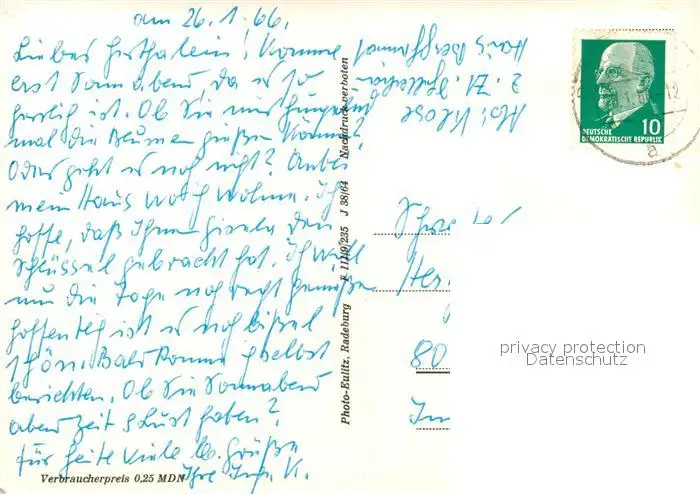 am 26.1.66.
Liebes Herthalein! Komme
erst Sonnabend, da es so
herrlich ist. Ob Sie mir
mal die Blumen gießen können?
Oder geht es noch nicht? Anbei
mein Haus wo ich wohne. Ich
hoffe, daß Ihnen Gisela den
Schlüssel gebracht hat. Ich will
nun die Tage noch recht genießen
hoffentlich ist es noch bißel
schön. Bald komme ich selbst
berichten. Ob Sie Sonnabend
abend Zeit & Lust haben?
Für heute viele lb. Grüße
Ihre Inge K.
Verbraucherpreis 0,25 MDN
Abs: Klose
Haus Bergfrieden
Photo-Eulitz, Radeburg F 11/19/235 J 38/64 Nachdruck verboten
DEUTSCHE
DEMOKRATISCHE REPUBLIK
10
Schwester
80
privacy protection
Datenschutz